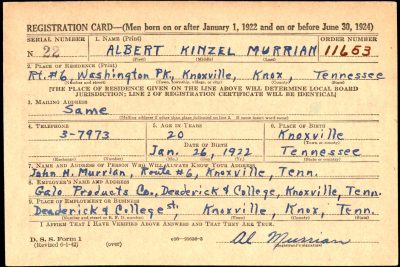 REGISTRATION CARD—(Men born on or after January 1, 1922 and on or before June 30, 1924)
SERIAL NUMBER 1. NAME (Print) ORDER NUMBER
N 22 ALBERT KINZEL MURRIAN 11653
(First) (Middle) (Last)
2. PLACE OF RESIDENCE (Print)
Rt.#6, Washington Pk, Knoxville, Knox, Tennessee
(Number and street) (Town, township, village, or city) (County) (State)
[THE PLACE OF RESIDENCE GIVEN ON THE LINE ABOVE WILL DETERMINE LOCAL BOARD
JURISDICTION; LINE 2 OF REGISTRATION CERTIFICATE WILL BE IDENTICAL]
3. MAILING ADDRESS
Same
(Mailing address if other than place indicated on line 2. If same insert word same)
4. TELEPHONE 5. AGE IN YEARS 6. PLACE OF BIRTH
3-7973 20 Knoxville
DATE OF BIRTH (Town or county)
Jan. 26, 1922 Tennessee
(Exchange) (Number) (Mo.) (Day) (Yr.) (State or country)
7. NAME AND ADDRESS OF PERSON WHO WILL ALWAYS KNOW YOUR ADDRESS
John H. Murrian, Route #6, Knoxville, Tenn.
8. EMPLOYER'S NAME AND ADDRESS
Products Co., Deaderick & College, Knoxville, Tenn.
9. PLACE OF EMPLOYMENT OR BUSINESS
Deaderick & College St. Knoxville, Knox, Tenn.
(Number and street or R. F. D. number) (Town) (County) (State)
I AFFIRM THAT I HAVE VERIFIED ABOVE ANSWERS AND THAT THEY ARE TRUE.
D. S. S. Form 1
(Revised 6-1-42) (over) Al Murrian